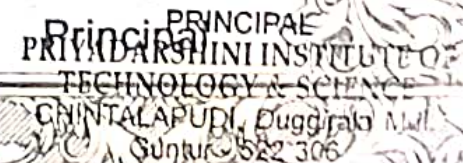 PRINCIPAL
Principal
PRIYADARSHINI INSTITUTE OF
TECHNOLOGY & SCIENCE
CHINTALAPUDI, Duggirala Mdl.
Guntur - 522 306